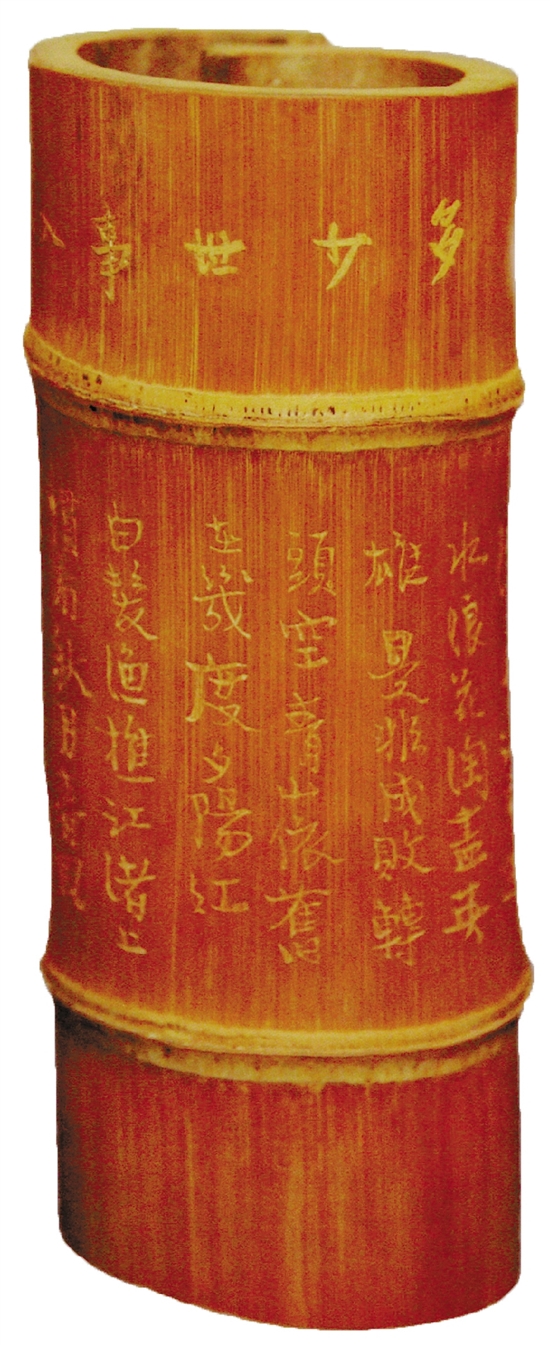 多少世事
水浪花淘盡英
雄是非成敗轉
頭空青山依舊
在幾度夕陽红
白髮漁樵江渚上
慣看秋月春風